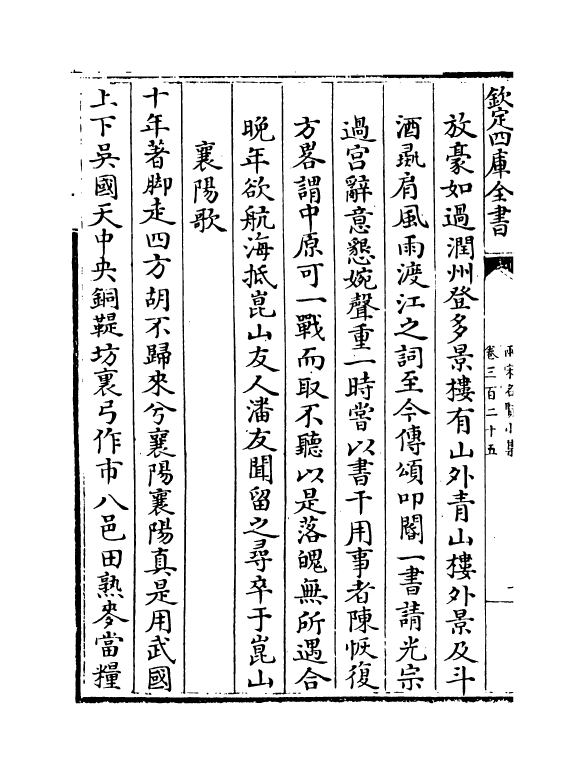 欽定四庫全書
兩宋名賢小集
卷三百二十五
放豪如過潤州登多景樓有山外青山樓外景及斗
酒彘肩風雨渡江之詞至今傳頌叩閽一書請光宗
過宮辭意懇婉聲重一時嘗以書干用事者陳恢復
方畧謂中原可一戰而取不聽以是落魄無所遇合
晚年欲航海抵崑山友人潘友聞留之尋卒于崑山
襄陽歌
十年著脚走四方胡不歸來兮襄陽襄陽真是用武國
上下吳國天中央銅鞮坊裏弓作市八邑田熟麥當糧